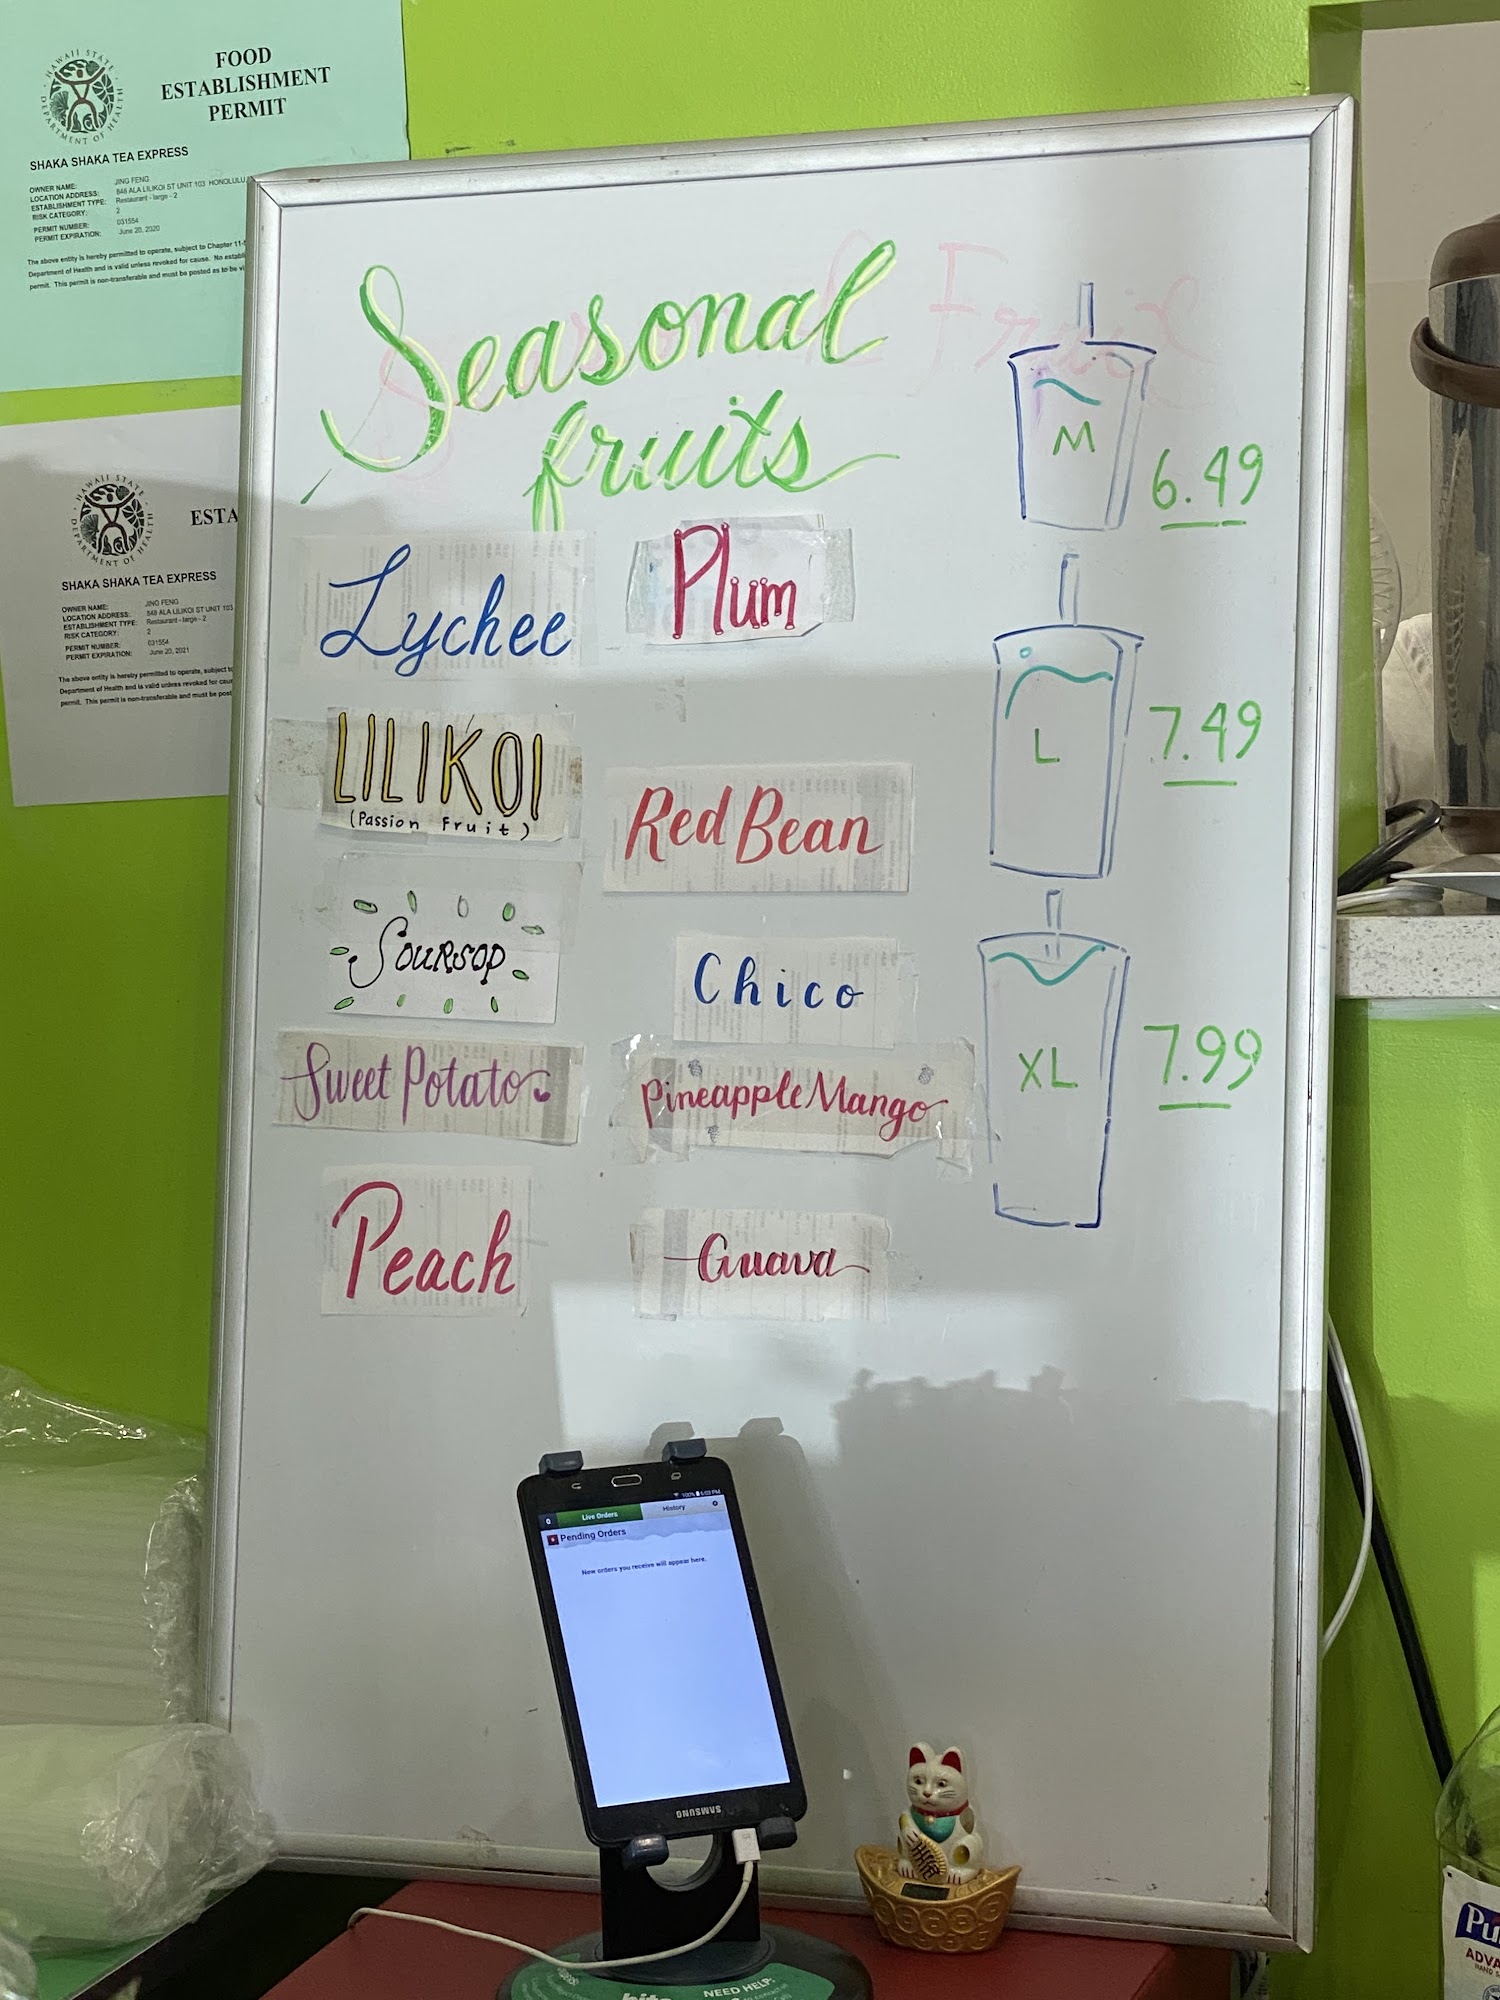 HAWAII STATE
DEPARTMENT OF HEALTH
FOOD
ESTABLISHMENT
PERMIT
SHAKA SHAKA TEA EXPRESS
OWNER NAME: JING FENG
LOCATION ADDRESS: 848 ALA LILIKOI ST UNIT 103 HONOLULU
ESTABLISHMENT TYPE: Restaurant - large - 2
RISK CATEGORY: 2
PERMIT NUMBER: 031554
PERMIT EXPIRATION: June 20, 2020
The above entity is hereby permitted to operate, subject to Chapter 11-
Department of Health and is valid unless revoked for cause. No
permit. This permit is non-transferable and must be posted as to be
HAWAII STATE
DEPARTMENT OF HEALTH
ESTA
SHAKA SHAKA TEA EXPRESS
OWNER NAME: JING FENG
LOCATION ADDRESS: 848 ALA LILIKOI ST UNIT 103
ESTABLISHMENT TYPE: Restaurant - large - 2
RISK CATEGORY: 2
PERMIT NUMBER: 031554
PERMIT EXPIRATION: June 20, 2021
The above entity is hereby permitted to operate, subject to
Department of Health and is valid unless revoked for
permit. This permit is non-transferable and must be
Seasonal
fruits
Fruit
Lychee
Plum
LILIKOI
(Passion Fruit)
Red Bean
Soursop
Chico
Sweet Potato
Pineapple Mango
Peach
Guava
M
6.49
L
7.49
XL
7.99
100% 5:03 PM
0 Live Orders History
Pending Orders
New orders you receive will appear here.
SAMSUNG
NEED HELP:
Pu
ADVA